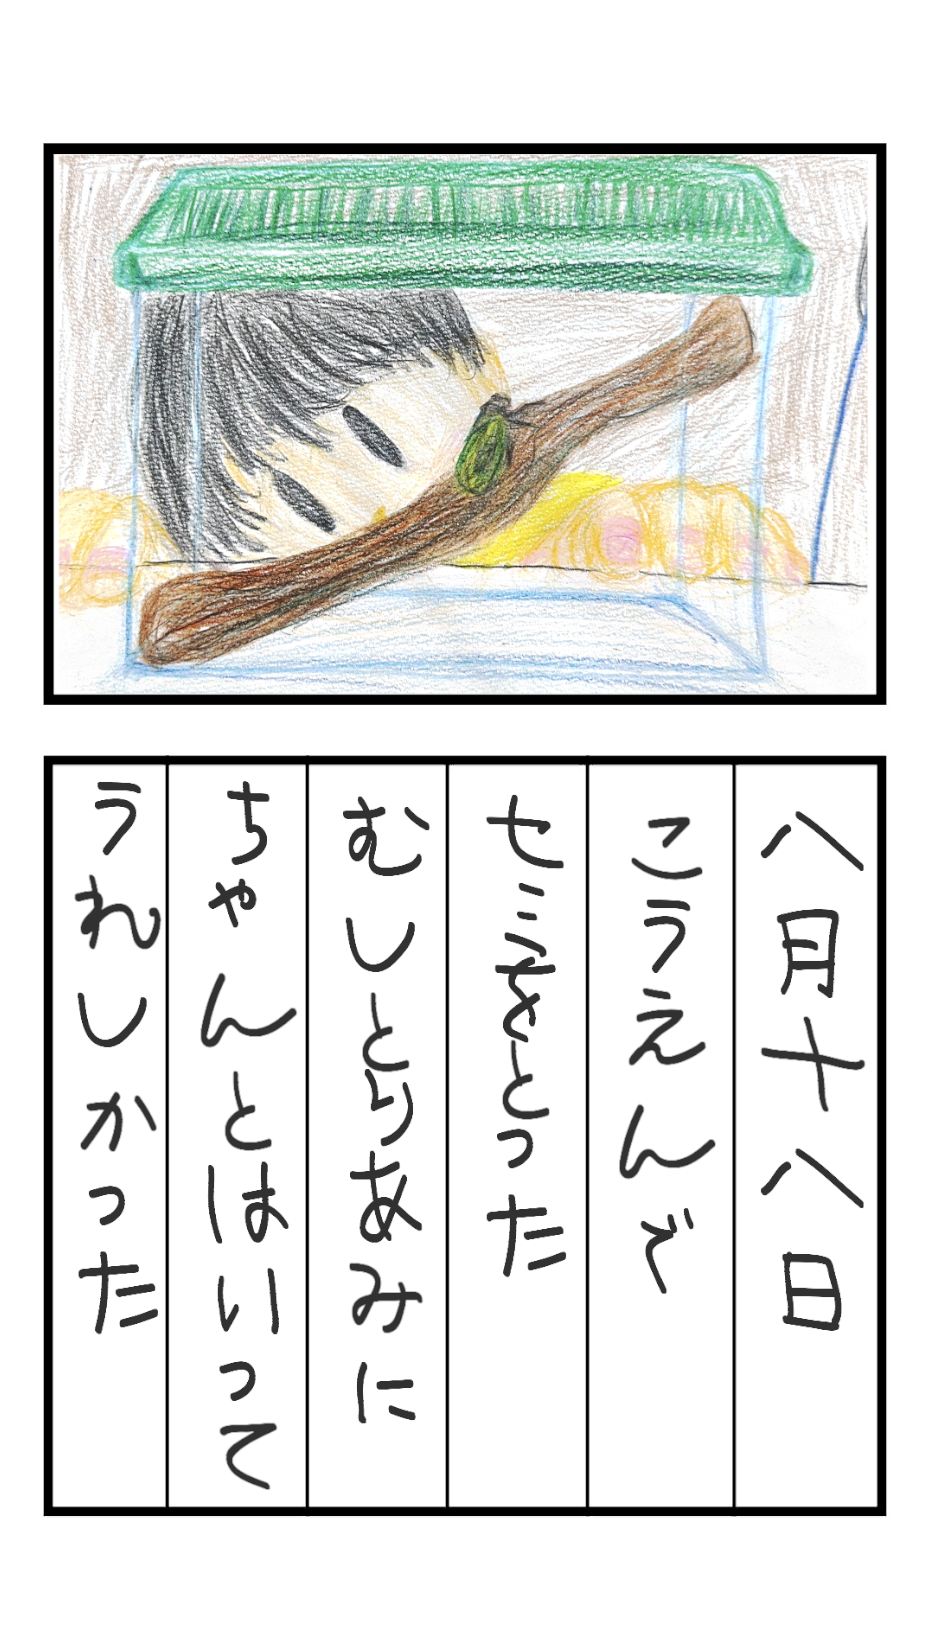 八月十八日
こうえんで
セミをとった
むしとりあみに
ちゃんとはいって
うれしかった